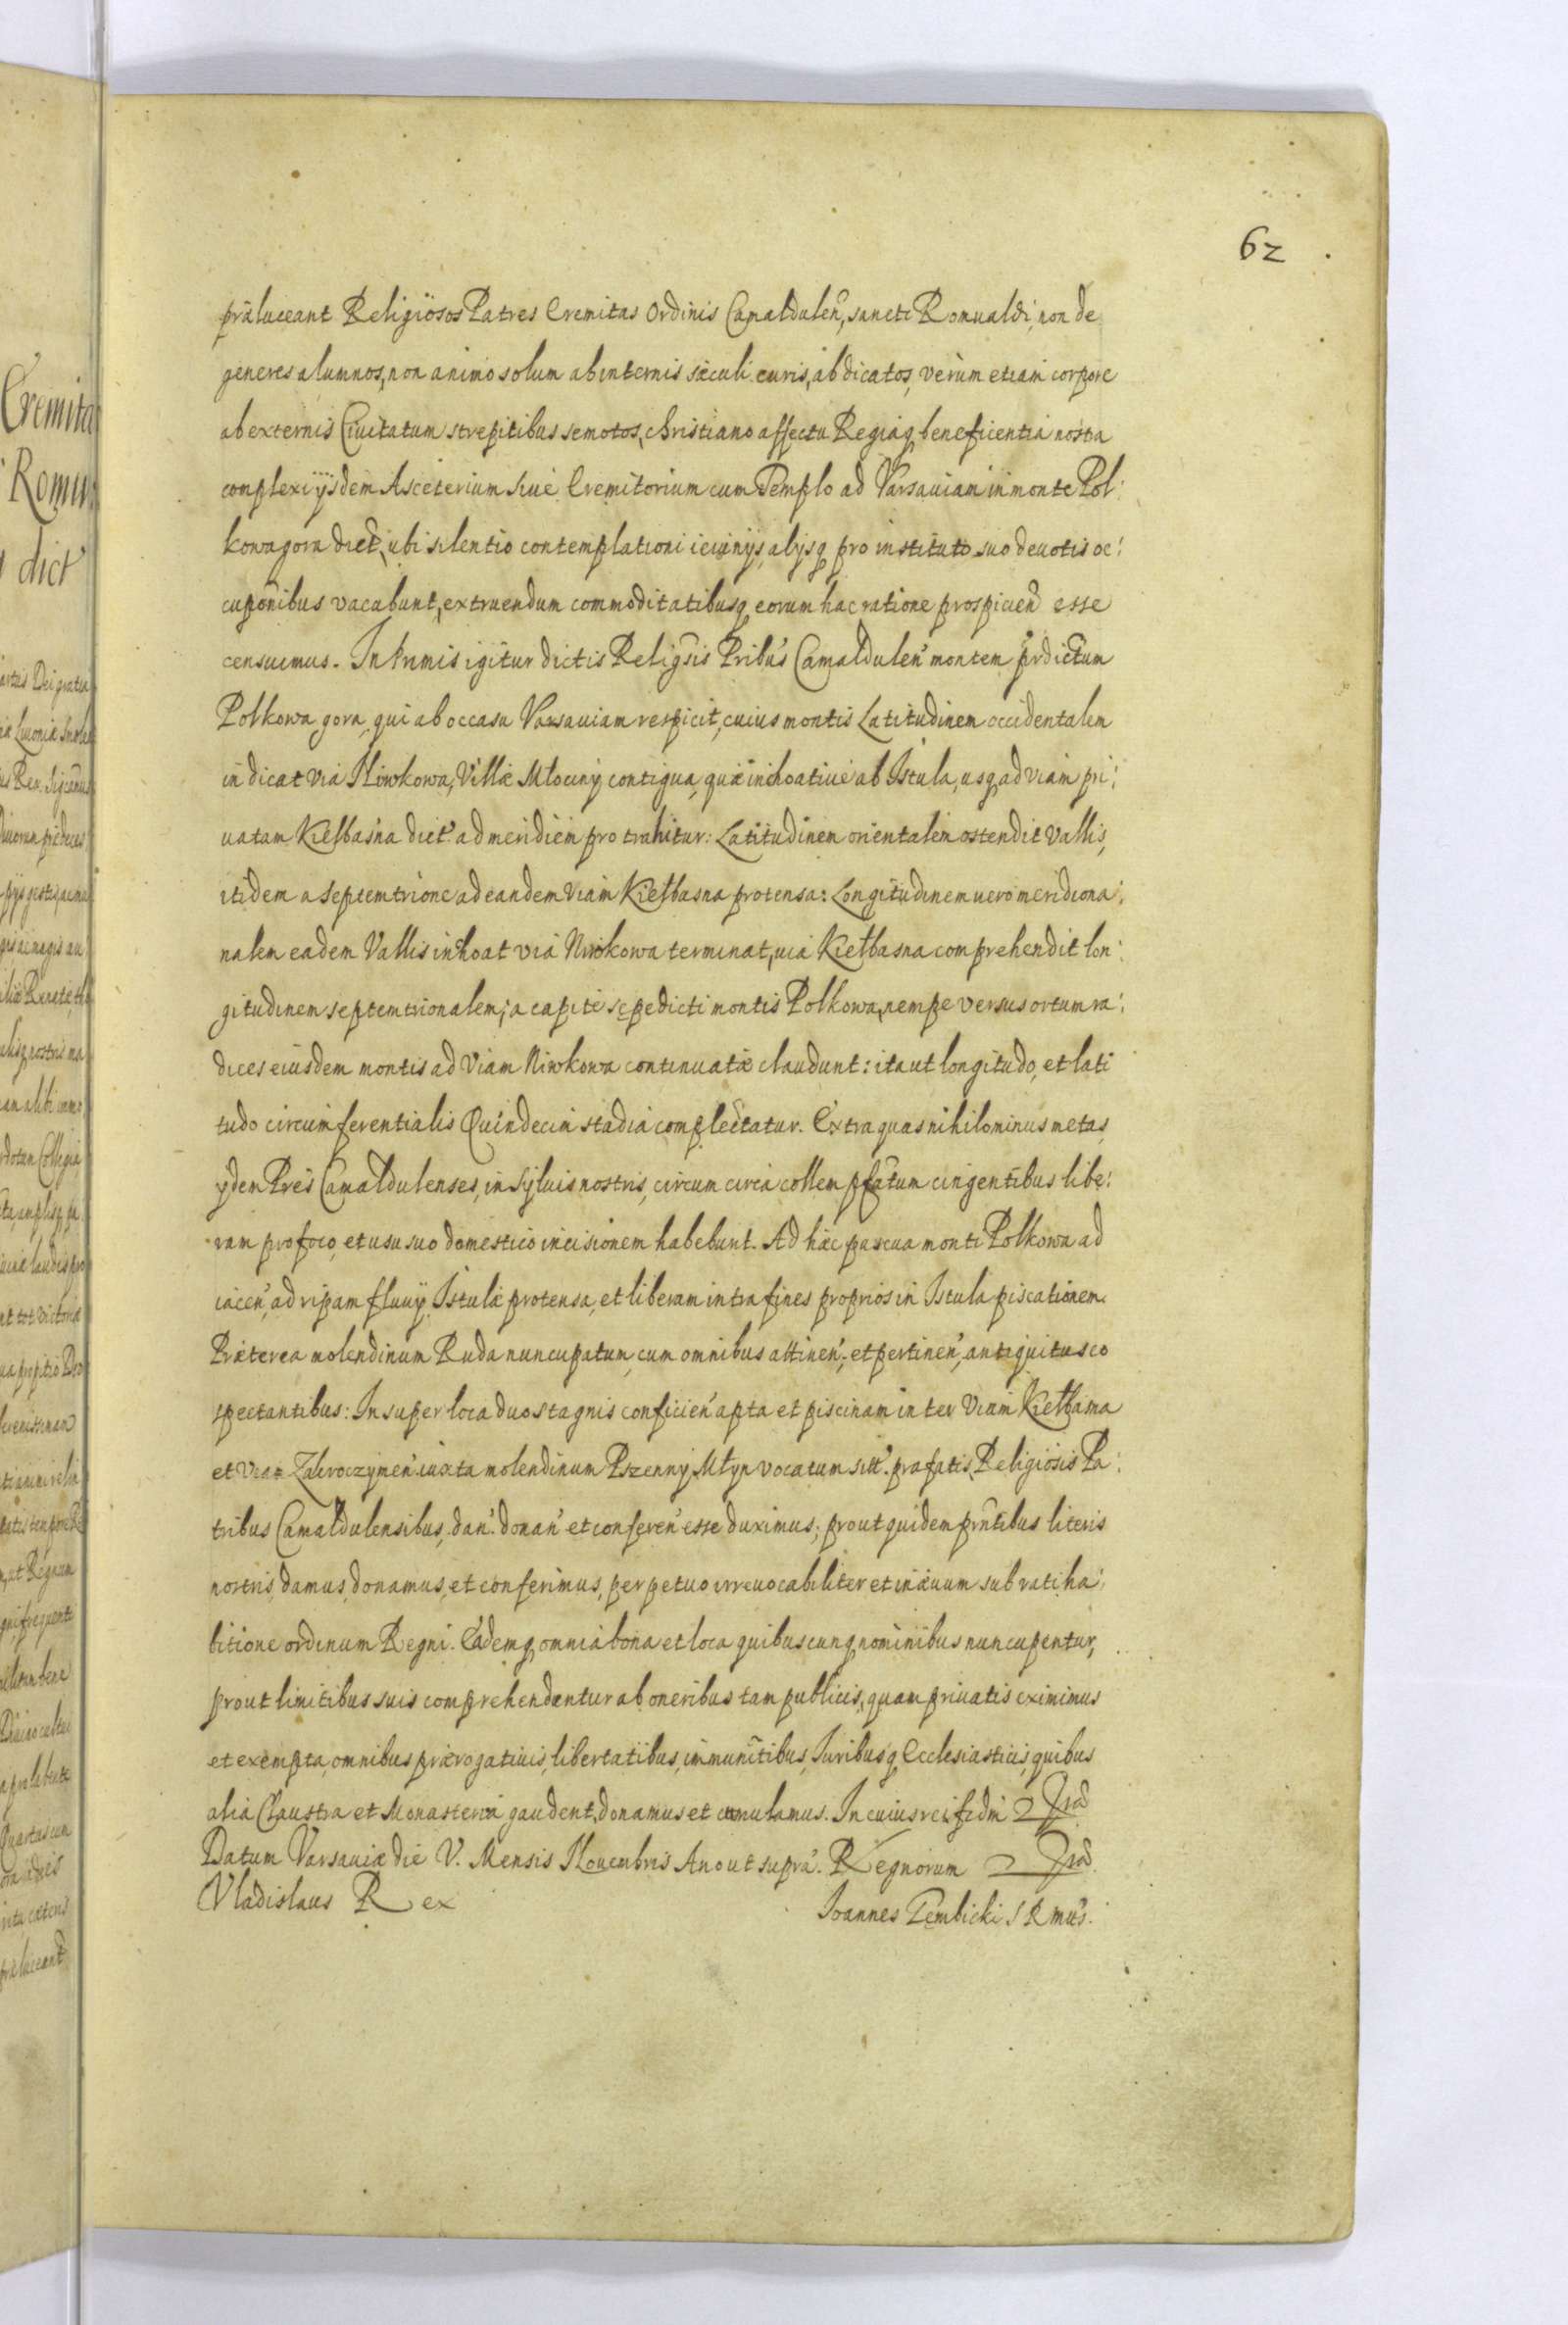 62
præluceant Religiosos Patres Eremitas Ordinis Camaldulen, sancti Romualdi, non de
generes alumnos, non animo solum ab internis sæculi curis, abdicatos, verum etiam corpore
ab externis Civitatum strepitibus semotos, christiano affectu Regiaq beneficentia nostra
complexi ijsdem Asceterium siue Eremitorium cum Templo ad Varsauiam in monte Pol:
kowagora dict, ubi silentio contemplationi ieiunijs, alijsq pro instituto suo deuotis oc:
cuponibus vacabunt, extruendum commoditatibusq eorum hac ratione prospicien esse
censuimus. In Primis igitur dictis Religsis Pribus Camaldulen montem prdictum
Polkowa gora, qui ab occasu Varsauiam respicit, cuius montis Latitudinem occidentalem
indicat via Niwkowa, Villæ Młociny contigua, quæ inchoatiue ab Istula, usq ad viam pri:
uatam Kiełbasna dict ad meridiem protrahitur: Latitudinem orientalem ostendit Vallis,
itidem a Septemtrione ad eandem viam Kiełbasna protensa: Longitudinem uero meridiona:
nalem eadem Vallis inchoat via Niwkowa terminat, uia Kiełbasna comprehendit lon:
gitudinem septemtrionalem; a capite sępedicti montis Polkowa, nempe versus ortum ra:
dices eiusdem montis ad Viam Niwkowa continuatæ claudunt: ita ut longitudo, et lati
tudo circumferentialis Quindecim stadia complectatur. Extra quas nihilominus metas,
ydem Pres Camaldulenses, in Syluis nostris, circum circa collem pfatum cingentibus libe:
ram pro foco, et usu suo domestico incisionem habebunt. Ad hæc pascua monti Polkowa ad
iacen, ad ripam fluuij Istulæ protensa, et liberam intra fines proprios in Istula piscationem.
Præterea molendinum Ruda nuncupatum, cum omnibus attinen, et pertinen, antiquitus eo
spectantibus: Insuper loca duo stagnis conficien apta et piscinam inter Viam Kiełbasna
et Viam Zakroczymen iuxta molendinum Pszenny Młyn vocatum sitt. præfatis, Religiosis Pa:
tribus Camaldulensibus, dan. donan et conferen esse duximus; prout quidem prntibus literis
nostris, damus, donamus, et conferimus, perpetuo irreuocabiliter et in æuum sub ratiha:
bitione ordinum Regni. Eademq omnia bona et loca quibuscunq nominibus nuncupentur,
prout limitibus suis comprehendentur ab oneribus tam publicis, quam priuatis eximimus
et exempta, omnibus prærogatiuis, libertatibus, immunitibus, Iuribusq Ecclesiasticis, quibus
alia Claustra et Monasteria gaudent, donamus et cumulamus. In cuius rei fidm
Datum Varsauiæ die V. Mensis Nouembris Ano ut supra. Regnorum
Vladislaus Rex
Ioannes Gembicki S R mus.